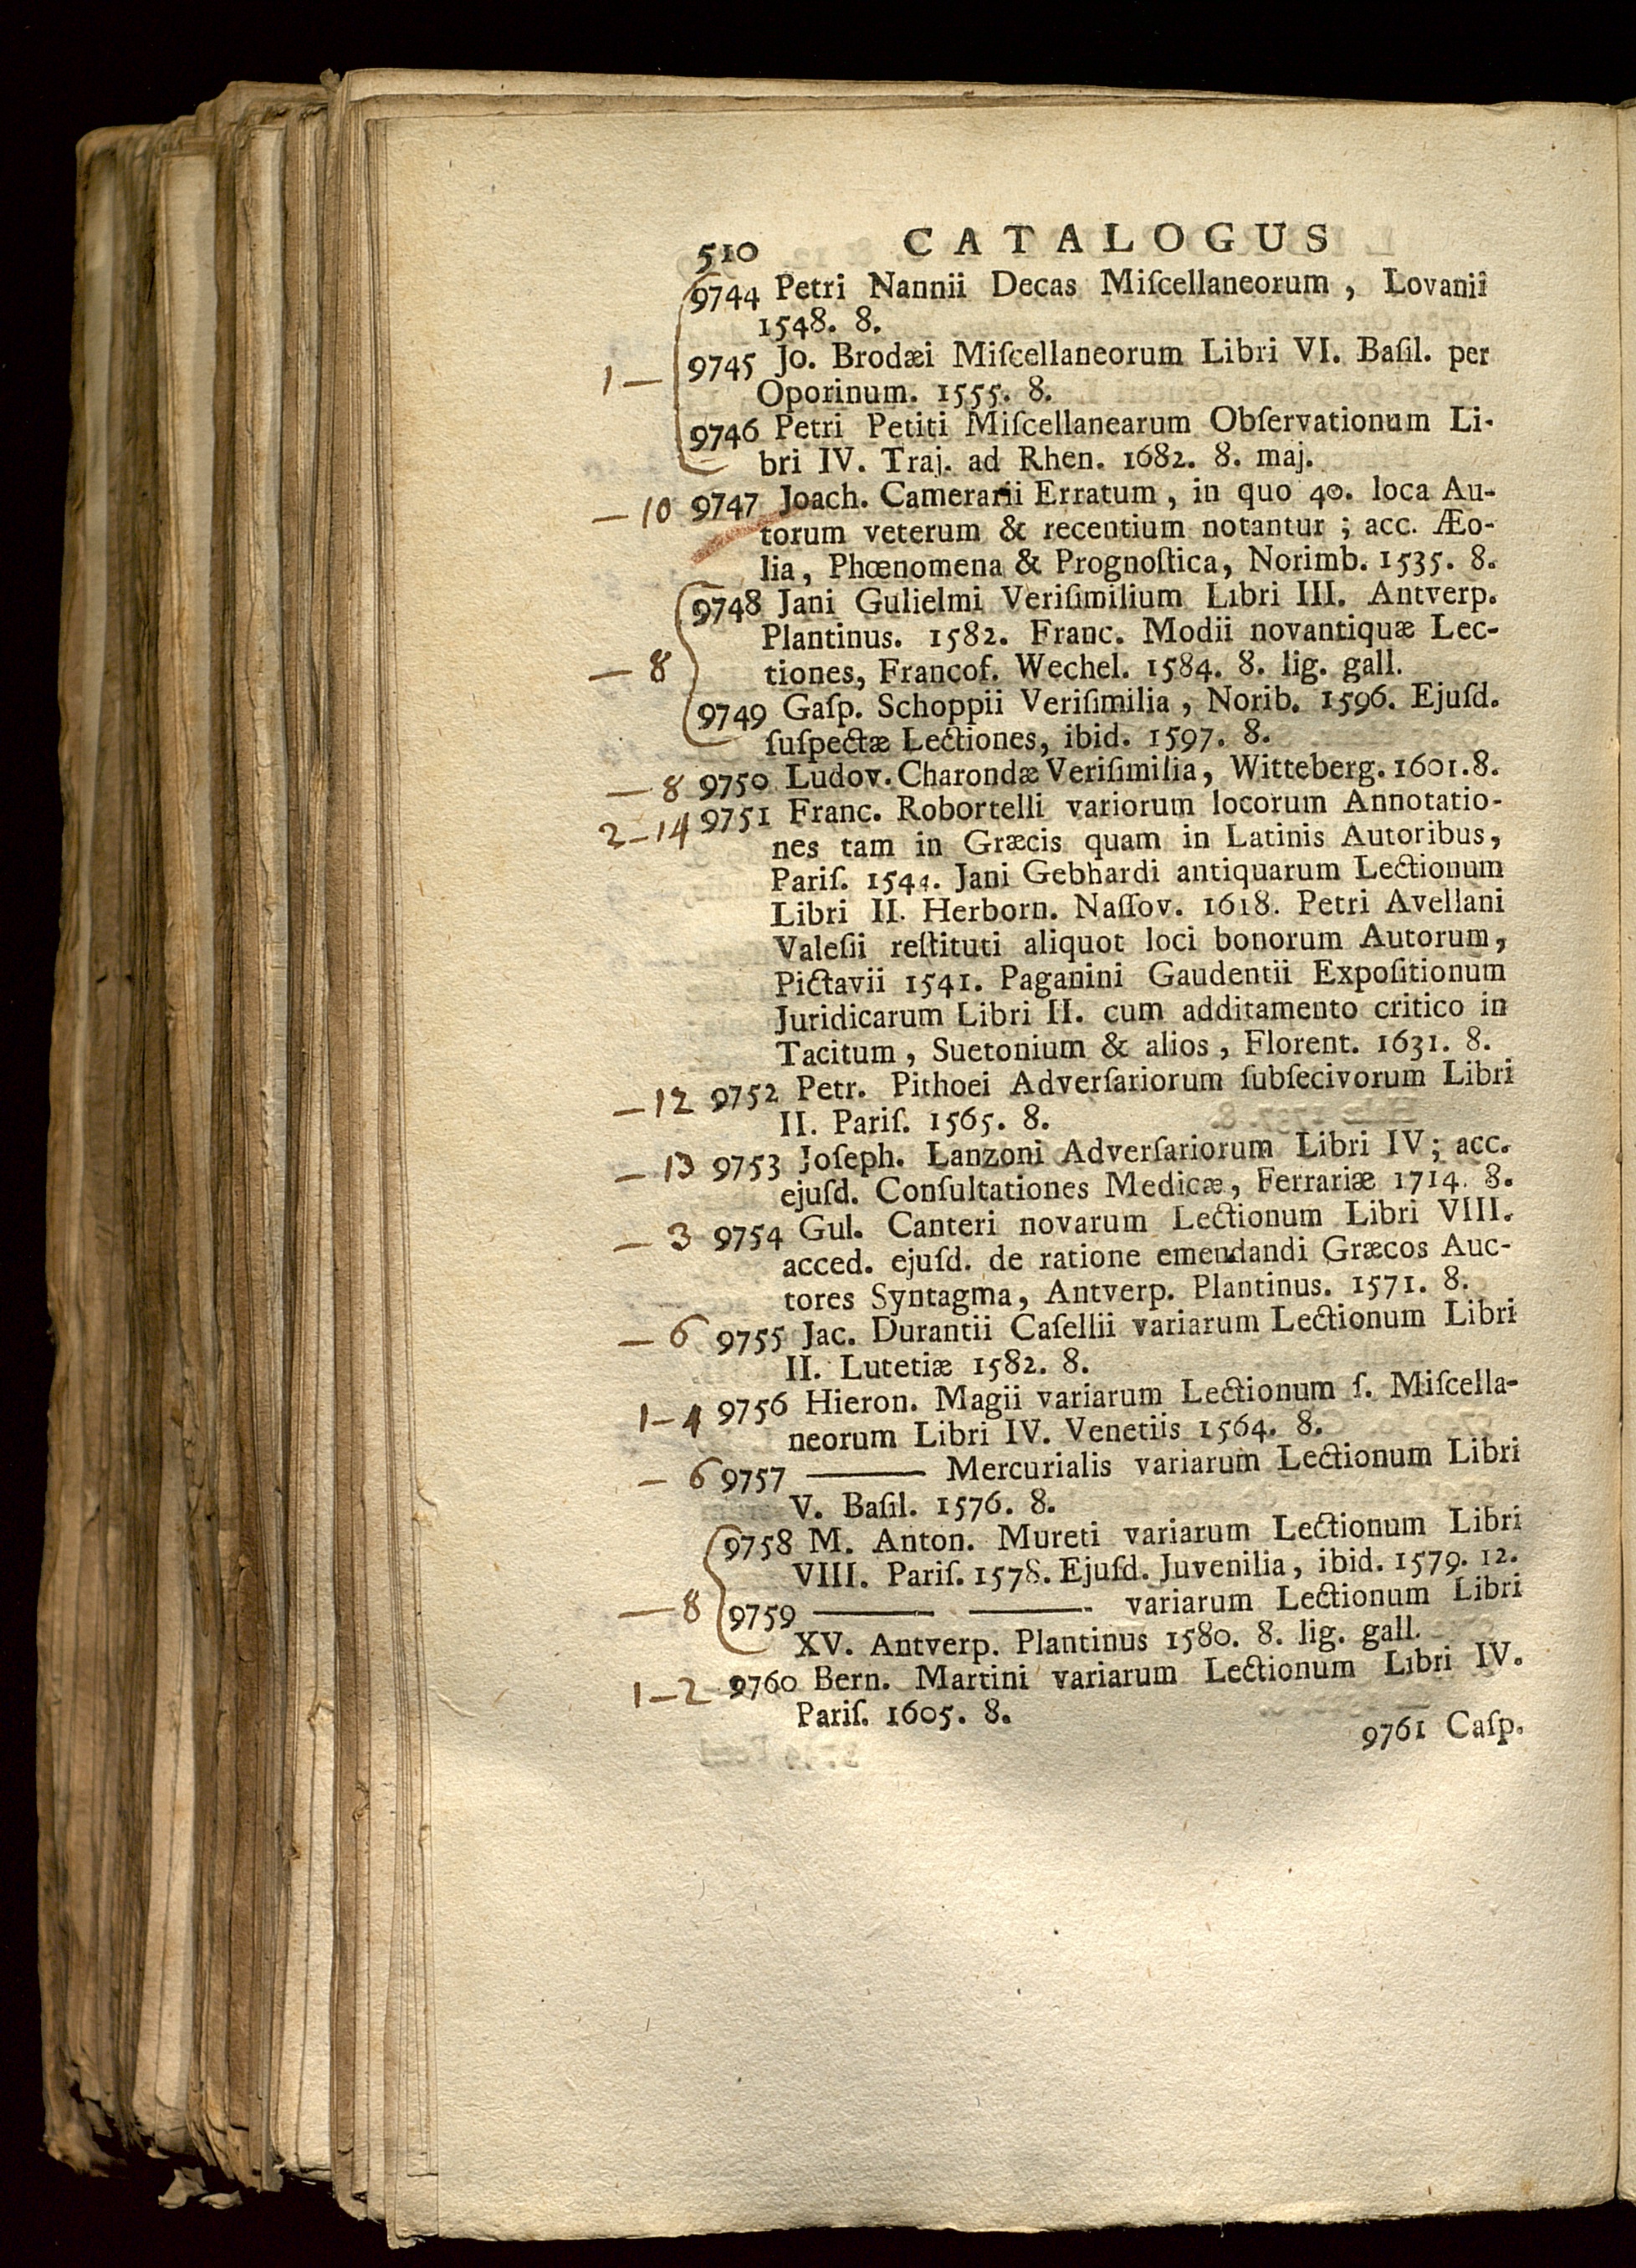 510 CATALOGUS
9744 Petri Nannii Decas Miſcellaneorum , Lovanii
1548. 8.
1 — 9745 Jo. Brodæi Miſcellaneorum Libri VI. Baſil. per
Oporinum. 1555. 8.
9746 Petri Petiti Miſcellanearum Obſervationum Li-
bri IV. Traj. ad Rhen. 1682. 8. maj.
— 10 9747 Joach. Camerarii Erratum , in quo 40. loca Au-
torum veterum & recentium notantur ; acc. Æo-
lia , Phœnomena & Prognoſtica, Norimb. 1535. 8.
9748 Jani Gulielmi Veriſimilium Libri III. Antverp.
Plantinus. 1582. Franc. Modii novantiquæ Lec-
— 8 tiones, Francof. Wechel. 1584. 8. lig. gall.
9749 Gaſp. Schoppii Veriſimilia , Norib. 1596. Ejuſd.
ſuſpectæ Lectiones, ibid. 1597. 8.
— 8 9750 Ludov. Charondæ Veriſimilia, Witteberg. 1601. 8.
2 — 14 9751 Franc. Robortelli variorum locorum Annotatio-
nes tam in Græcis quam in Latinis Autoribus,
Pariſ. 1544. Jani Gebhardi antiquarum Lectionum
Libri II. Herborn. Naſſov. 1618. Petri Avellani
Valeſii reſtituti aliquot loci bonorum Autorum,
Pictavii 1541. Paganini Gaudentii Expoſitionum
Juridicarum Libri II. cum additamento critico in
Tacitum , Suetonium & alios , Florent. 1631. 8.
— 12 9752 Petr. Pithoei Adverſariorum ſubſecivorum Libri
II. Pariſ. 1565. 8.
— 13 9753 Joſeph. Lanzoni Adverſariorum Libri IV ; acc.
ejuſd. Conſultationes Medicæ, Ferrariæ 1714. 8.
— 3 9754 Gul. Canteri novarum Lectionum Libri VIII.
acced. ejuſd. de ratione emendandi Græcos Auc-
tores Syntagma, Antverp. Plantinus. 1571. 8.
— 6 9755 Jac. Durantii Caſellii variarum Lectionum Libri
II. Lutetiæ 1582. 8.
1 — 4 9756 Hieron. Magii variarum Lectionum ſ. Miſcella-
neorum Libri IV. Venetiis 1564. 8.
— 6 9757 ——— Mercurialis variarum Lectionum Libri
V. Baſil. 1576. 8.
9758 M. Anton. Mureti variarum Lectionum Libri
VIII. Pariſ. 1578. Ejuſd. Juvenilia, ibid. 1579. 12.
— 8 9759 ——— ——— variarum Lectionum Libri
XV. Antverp. Plantinus 1580. 8. lig. gall.
1 — 2 9760 Bern. Martini variarum Lectionum Libri IV.
Pariſ. 1605. 8.
9761 Caſp.